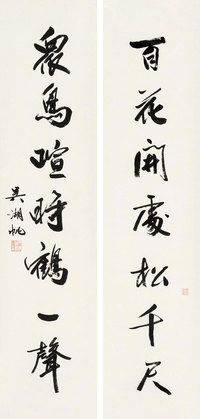 百花開處松千尺
眾鳥喧時鶴一聲
吳湖帆